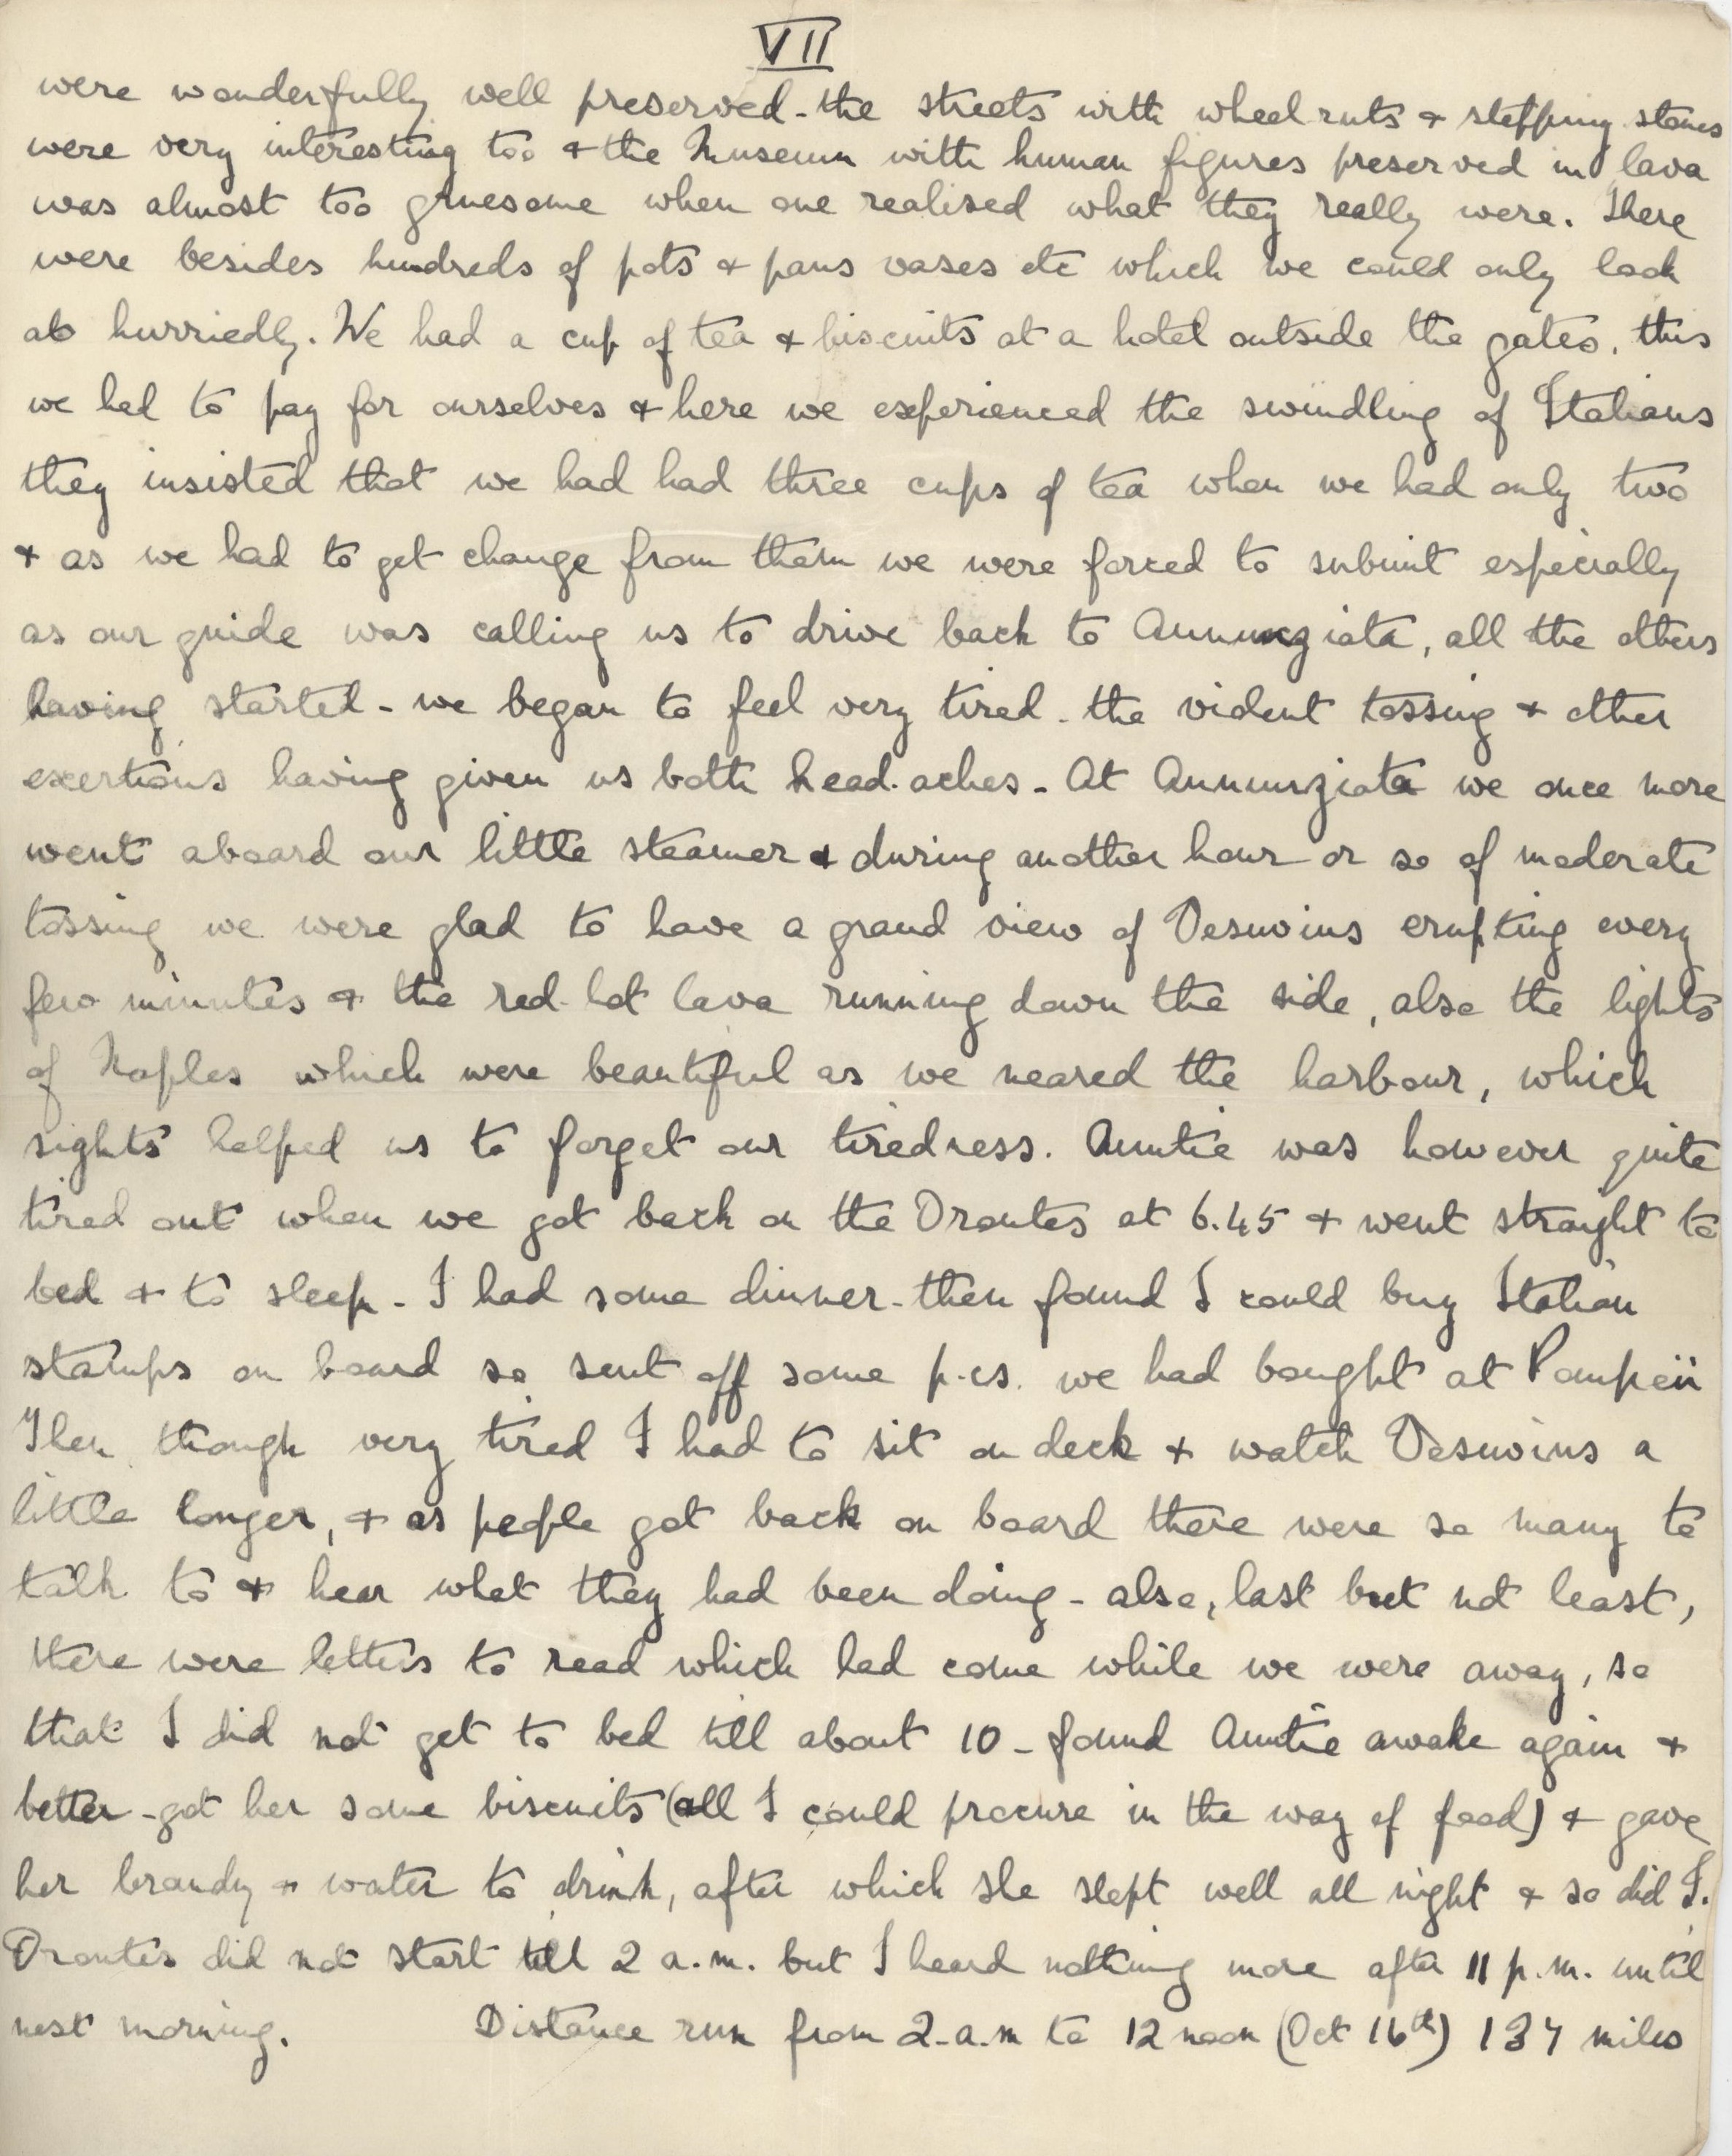 VII
were wonderfully well preserved - the streets with wheel ruts & stepping stones
were very interesting too & the Museum with human figures preserved in lava
was almost too gruesome when one realised what they really were. There
were besides hundreds of pots & pans vases etc which we could only look
at hurriedly. We had a cup of tea & biscuits at a hotel outside the gates, this
we had to pay for ourselves & here we experienced the swindling of Italians
they insisted that we had had three cups of tea when we had only two
& as we had to get change from them we were forced to submit especially
as our guide was calling us to drive back to Annunziata, all the others
having started - we began to feel very tired - the violent tossing & other
exertions having given us both head-aches - At Annunziata we once more
went aboard our little steamer & during another hour or so of moderate
tossing we were glad to have a grand view of Vesuvius erupting every
few minutes & the red-hot lava running down the side, also the lights
of Naples which were beautiful as we neared the harbour, which
sights helped us to forget our tiredness. Auntie was however quite
tired out when we got back on the Orontes at 6.45 & went straight to
bed & to sleep - I had some dinner - then found I could buy Italian
stamps on board so sent off some p.cs. we had bought at Pompeii
Then though very tired I had to sit on deck & watch Vesuvius a
little longer, & as people got back on board there were so many to
talk to & hear what they had been doing - also, last but not least,
there were letters to read which had come while we were away, so
that I did not get to bed till about 10 - found Auntie awake again &
better - got her some biscuits (all I could procure in the way of food) & gave
her brandy & water to drink, after which she slept well all night & so did I.
Orontes did not start till 2 a.m. but I heard nothing more after 11 p.m. until
next morning. Distance run from 2-a.m to 12 noon (Oct 16th) 137 miles